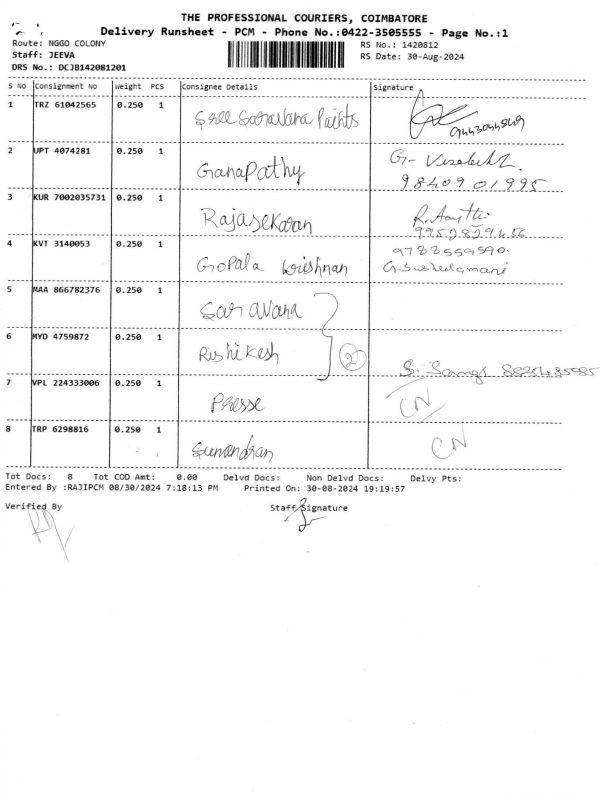 THE PROFESSIONAL COURIERS, COIMBATORE
Delivery Runsheet - PCM - Phone No.:0422-3505555 - Page No.:1
Route: NGGO COLONY
RS No.: 1420812
Staff: JEEVA
RS Date: 30-Aug-2024
DRS No.: DCJB142081201
S No Consignment No Weight PCS Consignee Details Signature
1 TRZ 61042565 0.250 1 Sree Saravana Paints
2 UPT 4074281 0.250 1 Ganapathy G-
9840901995
3 KUR 7002035731 0.250 1 Rajasekaran
9952829456
4 KVT 3140053 0.250 1 Gopala krishnan 9788559590.
5 MAA 866782376 0.250 1 Saravana
6 MYD 4759872 0.250 1 Rishikesh 2 S.
7 VPL 224333006 0.250 1 CN
8 TRP 6298816 0.250 1 CN
Tot Docs: 8 Tot COD Amt: 0.00 Delvd Docs: Non Delvd Docs: Delvy Pts:
Entered By :RAJIPCM 08/30/2024 7:18:13 PM Printed On: 30-08-2024 19:19:57
Verified By Staff Signature